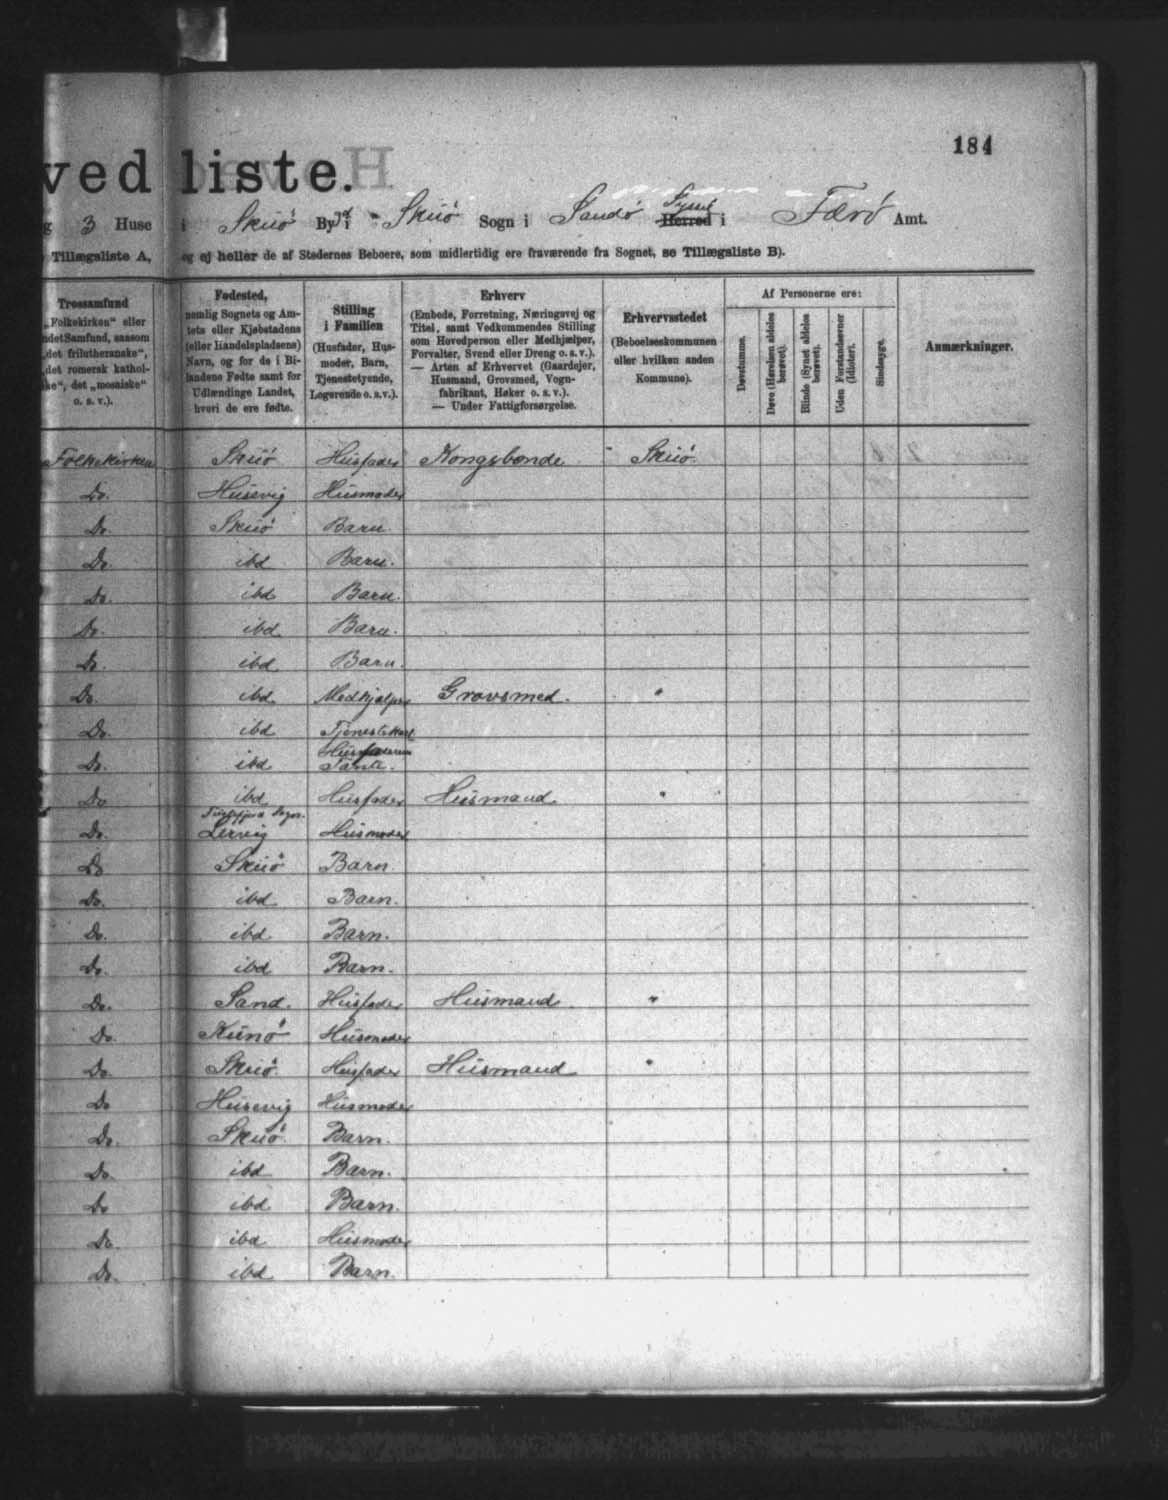 184
ved liste.
3 Huse i Skuö By i Skuö Sogn i Sandö Herred Syssel i Færö Amt.
Tillægsliste A, og ej heller de af Stedernes Beboere, som midlertidig ere fraværende fra Sognet, se Tillægsliste B).
Trossamfund
„Folkekirken“ eller
ndet Samfund, saasom
„det frilutheranske“,
det romersk kathol-
ke“, det „mosaiske“
o. s. v.).
Fødested,
nemlig Sognets og Am-
tets eller Kjøbstadens
(eller Handelspladsens)
Navn, og for de i Bi-
landene Fødte samt for
Udlændinge Landet,
hvori de ere fødte.
Stilling
i Familien
(Husfader, Hus-
moder, Barn,
Tjenestetyende,
Logerende o. s. v.).
Erhverv
(Embede, Forretning, Næringsvej og
Titel, samt Vedkommendes Stilling
som Hovedperson eller Medhjælper,
Forvalter, Svend eller Dreng o. s. v.).
— Arten af Erhvervet (Gaardejer,
Husmand, Grovsmed, Vogn-
fabrikant, Høker o. s. v.).
— Under Fattigforsørgelse.
Erhvervsstedet
(Beboelseskommunen
eller hvilken anden
Kommune).
Af Personerne ere:
Døvstumme.
Døve (Hørelsen aldeles
berøvet).
Blinde (Synet aldeles
berøvet).
Uden Forstandsevner
(Idioter).
Sindssyge.
Anmærkninger.
Folkekirken Skuö Husfader Kongsbonde Skuö.
Do. Husevig Husmoder
Do. Skuö Barn
Do. ibd Barn.
Do. ibd Barn.
Do. ibd Barn.
Do. ibd Barn.
Do. ibd Medhjælper Grovsmed. "
Do. ibd Tjenestekarl
Husfaderens
Do. ibd Tante.
Do ibd Husfader Husmand "
Do. Lervig Husmoder
Do Skuö Barn
Do. ibd Barn.
Do. ibd Barn.
Do. ibd Barn.
Do. Sand Husfader Husmand "
Do. Kunö Husmoder
Do. Skuö Husfader Husmand "
Do Husevig Husmoder
Do. Skuö Barn.
Do. ibd Barn.
Do ibd Barn.
Do. ibd Husmoder
Do. ibd Barn.